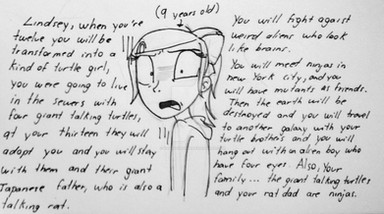 (9 years old)
Lindsey, when you're
twelve you will be
transformed into a
kind of turtle girl,
you were going to live
in the sewers with
four giant talking turtles,
at your thirteen they will
adopt you and you will stay
with them and their giant
Japanese father, who is also a
talking rat.
You will fight agaist
weird aliens who look
like brains.
You will meet ninjas in
new York city, and you
will have mutants as friends.
Then the earth will be
destroyed and you will travel
to another galaxy with your
turtle brothers and you will
hang out with an alien boy who
have four eyes. Also, Your
family... the giant talking turtles
and your rat dad are ninjas.